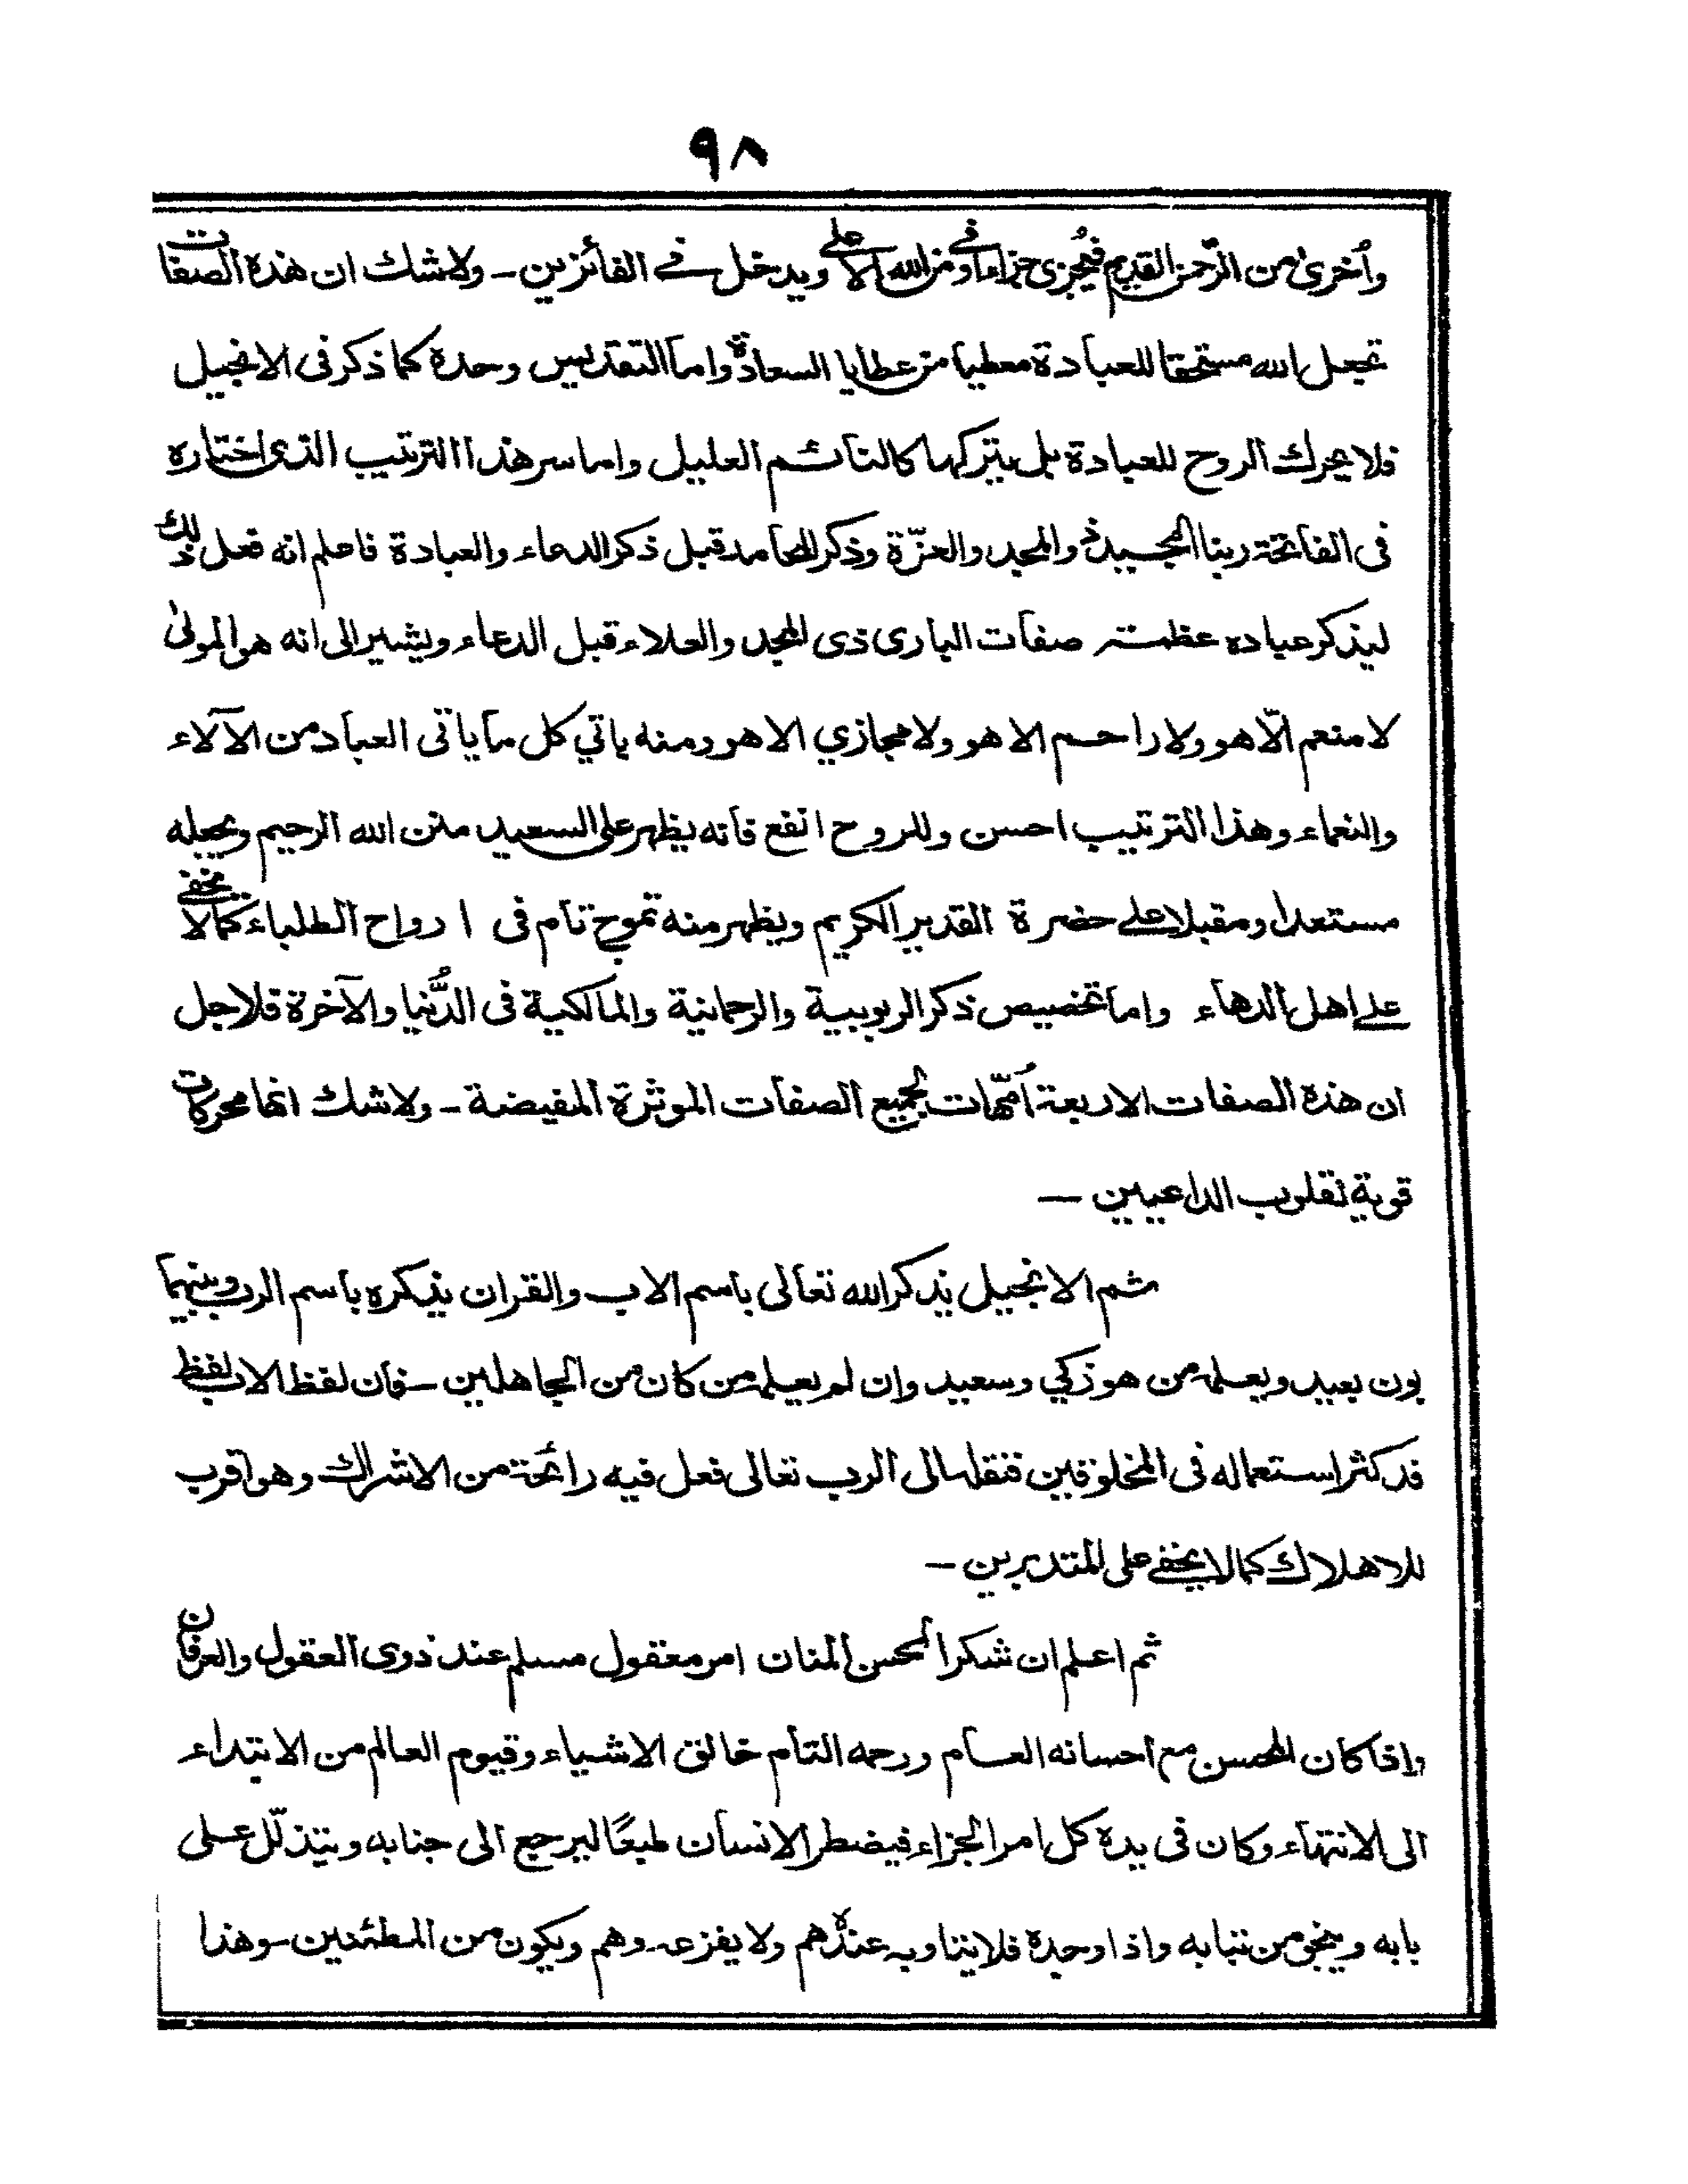 ٩٨
وأخرى من الرّحمن القديم فيُجزى جزاءً اوفى من الله الاعلى ويدخل فے الفائزين ـ ولا شك ان هذه الصفات
تجعل الله مستحقا للعبادة معطيا من عطايا السعادة واما التقديس وحده كما ذكر فى الانجيل
فلا يحرك الروح للعبادة بل يتركها كالنائم العليل واما سر هذا الترتيب الذى اختاره
فى الفاتحة ربنا المجيد ذو المجد والعزّة وذكر المحامد قبل ذكر الدعاء والعبادة فاعلم انه فعل ذلك
ليذكر عباده عظمته صفات البارى ذى المجد والعلاء قبل الدعاء ويشير الى انه هو المولىٰ
لا منعم الّا هو ولا راحم الا هو ولا مجازي الا هو ومنه ياتي كل ما ياتى العباد من الآلاء
والنعماء وهذا الترتيب احسن وللروح انفع فانه يظهر على السعيد منن الله الرحيم ويجعله
مستعدا ومقبلا علے حضرة القدير الكريم ويظهر منه تموج تام فى ارواح الطلباء كما لا يخفے
علے اهل الدهاء واما تخصيص ذكر الربوبية والرحمانية والمالكية فى الدُّنيا والآخرة فلاجل
ان هذه الصفات الاربعة اُمّهات لجميع الصفات الموثرة المفيضة ـ ولا شك انها محركات
قوية لقلوب الداعيين ـ
ثم الانجيل يذكر الله تعالى باسم الاب والقران يذكره باسم الرب وبينهما
بون بعيد ويعلمه من هو زكي وسعيد وان لم يعلمه من كان من الجاهلين ـ فان لفظ الاب لفظ
قد كثر استعماله فى المخلوقين فنقله الى الرب تعالى فعل فيه رائحة من الاشراك وهو اقرب
للاهلاك كما لا يخفے على المتدبرين ـ
ثم اعلم ان شكر المحسن المنان امر معقول مسلم عند ذوى العقول والعرفان
واذا كان المحسن مع احسانه العام ورحمه التام خالق الاشياء وقيوم العالم من الابتداء
الى الانتهاء وكان فى يده كل امر الجزاء فيضطر الانسان طبعًا ليرجع الى جنابه ويتذلّل على
بابه وينجو من تبابه واذا وحده فلا يتاوبه عنده هم ولا يفزعه وهم ويكون من المطمئنين ـ وهذا